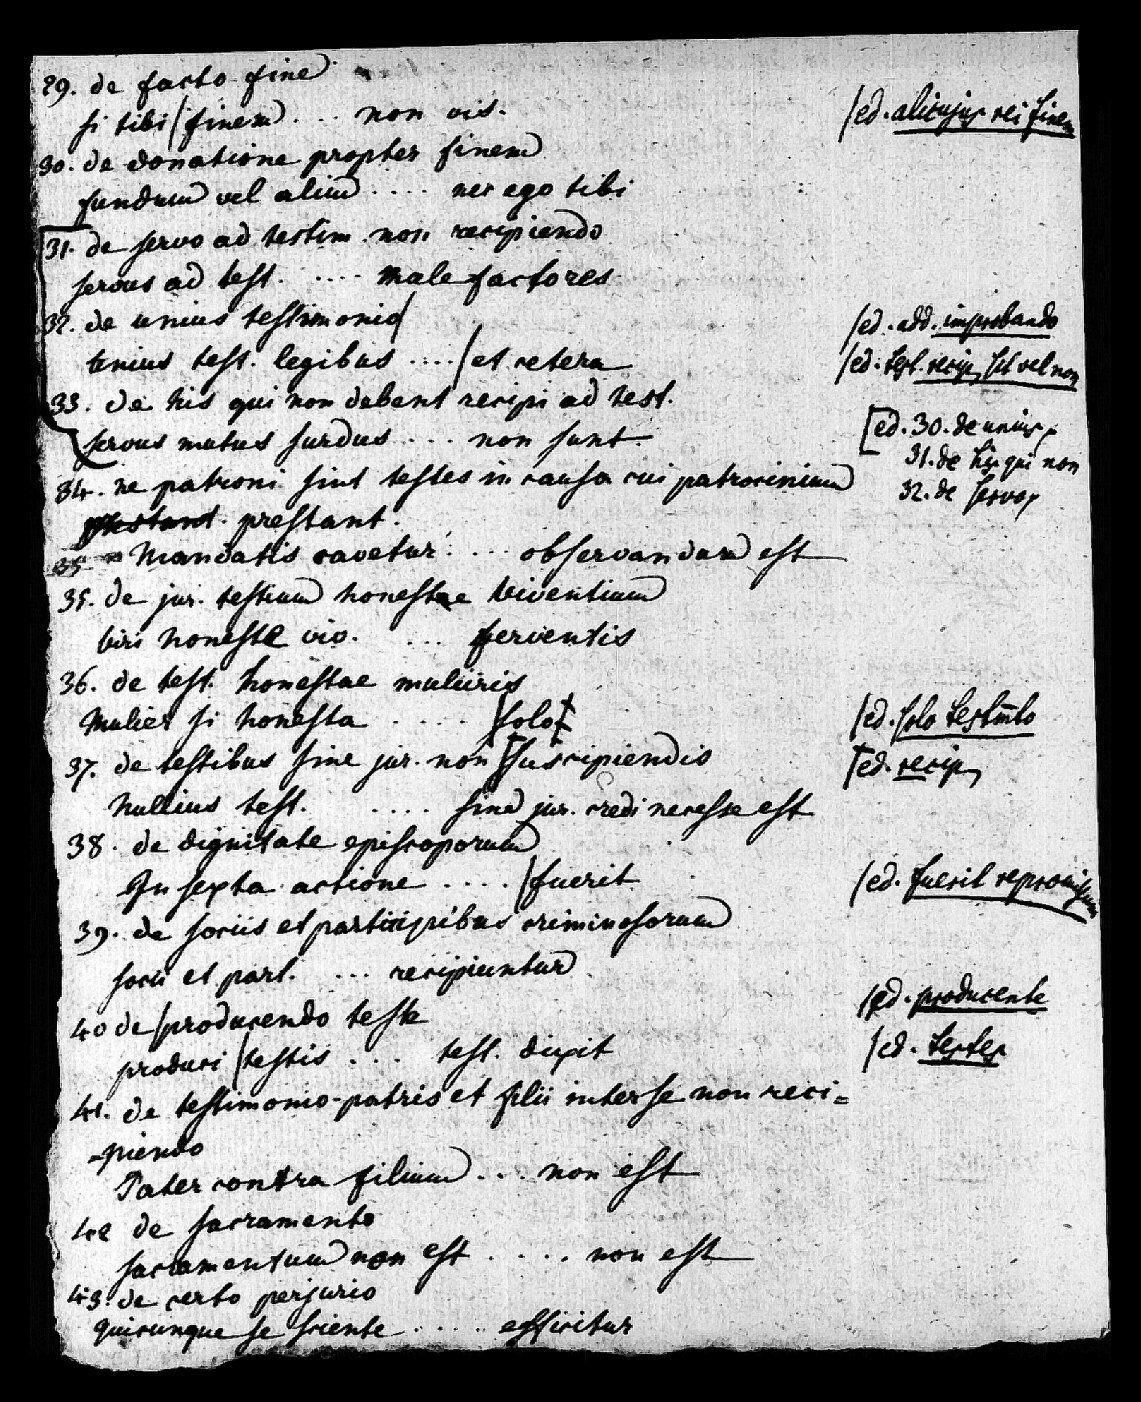 29. de facto fine
si tibi / finem ... non vis.
/ ed. alicujus rei finem
30. de donatione propter finem
fundum vel alium .... nec ego tibi
31. de servo ad testim. non recipiendo
servus ad test. .... malefactores
32. de unius testimonio /
/ ed. add. improbando
unius test. legibus .... / et cetera
/ ed. test. recip, sit vel non
33. de his qui non debent recipi ad test.
servus mutus surdus ... non sunt
[ed. 30. de unius
31. de his qui non
32. de servo
34. ne patroni sint testes in causa cui patrocinium
prestant. prestant.
35 Mandatis cavetur .... observandum est
35. de jur. testium honestae viventium
viri honeste viv. ... ferventis
36. de test. honestae mulieris
Mulier si honesta .... / solo
/ ed. solo testmto
37. de testibus sine jur. non suscipiendis
ed. recip,
nullius test. .... sine jur. credi necesse est
38. de dignitate episcoporum
In sexta actione .... / fuerit
/ ed. fuerit repromissum
39. de sociis et participibus criminosorum
socii et part. ... recipiuntur
40 de / producendo teste
/ ed. producente
produci / testis ... test. dixit
/ ed. testes
41. de testimonio patris et filii inter se non reci=
-piendo
Pater contra filium ... non est
42 de sacramento
sacramentum non est .... non est
43. de certo perjurio
quicunque se sciente ..... efficitur